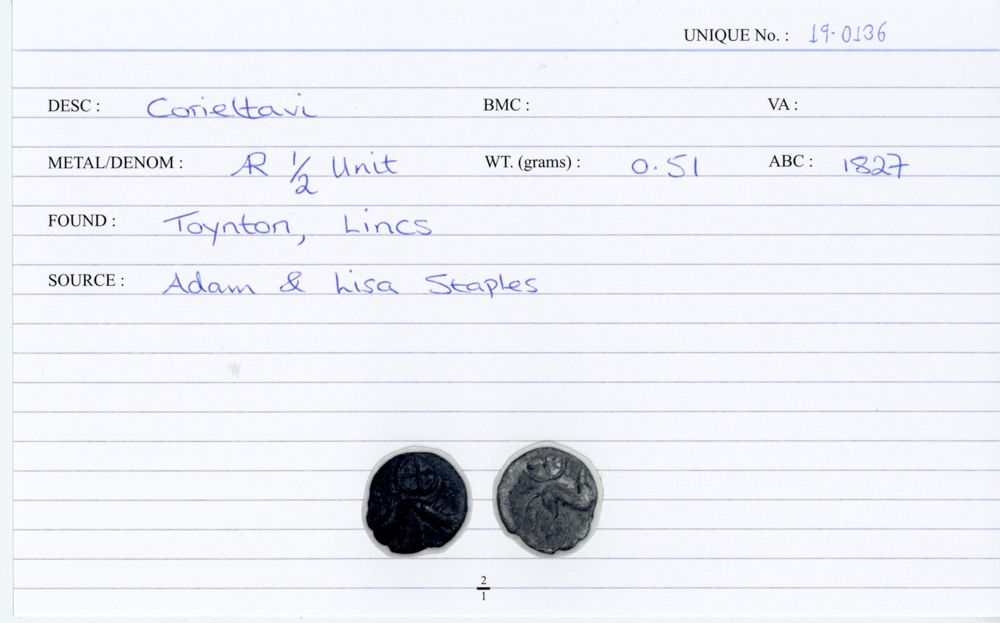 UNIQUE No. : 19-0136
DESC : Corieltavi BMC : VA :
METAL/DENOM : AR 1/2 Unit WT. (grams) : 0.51 ABC : 1827
FOUND : Toynton, Lincs
SOURCE : Adam & Lisa Staples
2
1